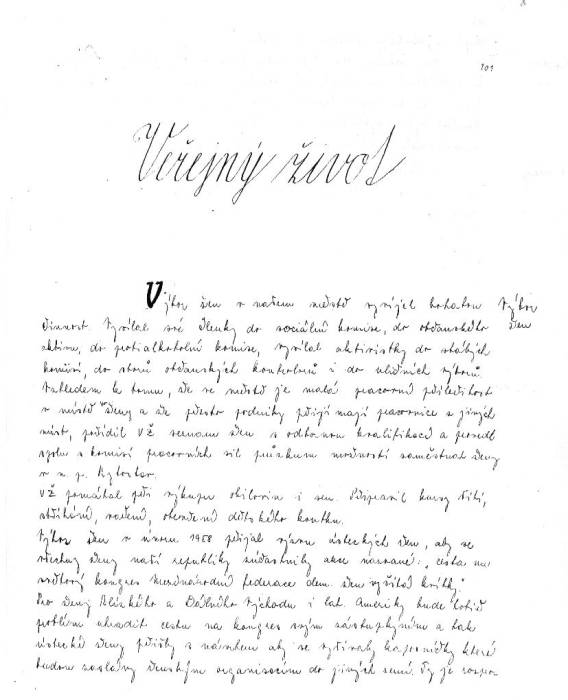 101
Veřejný život
Výbor žen v našem městě vyvíjel bohatou Výbor
činnost. Vysílal své členky do sociální komise, do občanského žen
aktivu, do protialkoholní komise, vysílal aktivistky do stálých
komisí, do sborů občanských a i do uličních výborů.
Vzhledem k tomu, že ve městě je malá pracovní příležitost
v místě ženy a že přesto podniky přijímají pracovnice z jiných
míst, pořídil VŽ seznam žen s odbornou kvalifikací a provedl
spolu s komisí pracovních sil průzkum možností zaměstnat ženy
v n. p. Kyloster.
VŽ pomáhal při výkupu obilovin i sena. Připravil kursy šití,
stříhání, vaření, otevření dětského koutku.
Výbor žen v únoru 1958 přijal výzvu ústeckých žen, aby se
všechny ženy naší republiky zúčastnily akce nazvané: "cesta na
světový kongres Mezinárodní federace dem. žen
Pro ženy Blízkého a Dálného Východu i lat. Ameriky bude totiž
problém uhradit cestu na kongres svým zástupkyním a tak
ústecké ženy přišly s návrhem aby se vyšívaly kapesníčky které
budou zaslány ženským organisacím do jiných zemí. Ty je